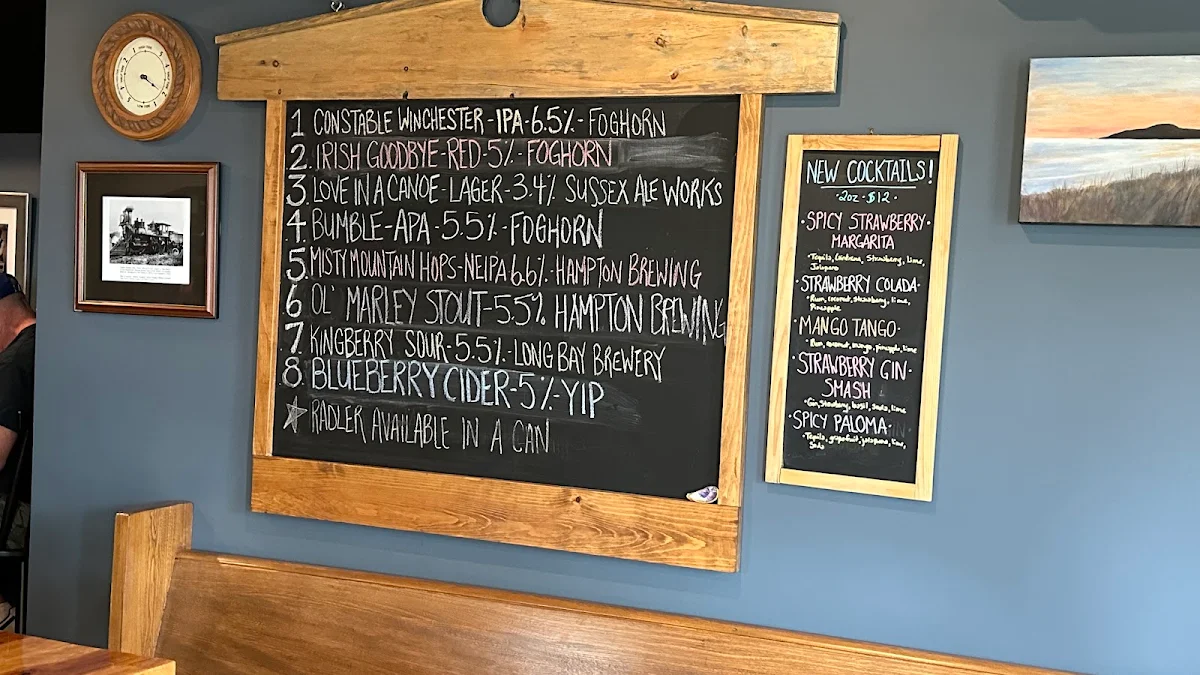 1 CONSTABLE WINCHESTER-IPA-6.5%-FOGHORN
2. IRISH GOODBYE-RED-5%-FOGHORN
3. LOVE IN A CANOE-LAGER-3.4% SUSSEX ALE WORKS
4 BUMBLE-APA-5.5%-FOGHORN
5. MISTY MOUNTAIN HOPS-NEIPA 6.6%-HAMPTON BREWING
6 OL' MARLEY STOUT-5.5% HAMPTON BREWING
7 KINGBERRY SOUR-5.5%-LONG BAY BREWERY
8 BLUEBERRY CIDER-5%-YIP
RADLER AVAILABLE IN A CAN
NEW COCKTAILS!
-2oz-$12-
·SPICY STRAWBERRY·
MARGARITA
Tequila, Strawberry, lime,
Jalapeno
·STRAWBERRY COLADA·
Rum, coconut, strawberry, lime,
Pineapple
·MANGO TANGO·
Rum, coconut, mango, pineapple, lime
·STRAWBERRY GIN·
SMASH
Gin, Strawberry, basil, Soda, lime
·SPICY PALOMA·
Tequila, grapefruit, jalapeno, lime,
Soda